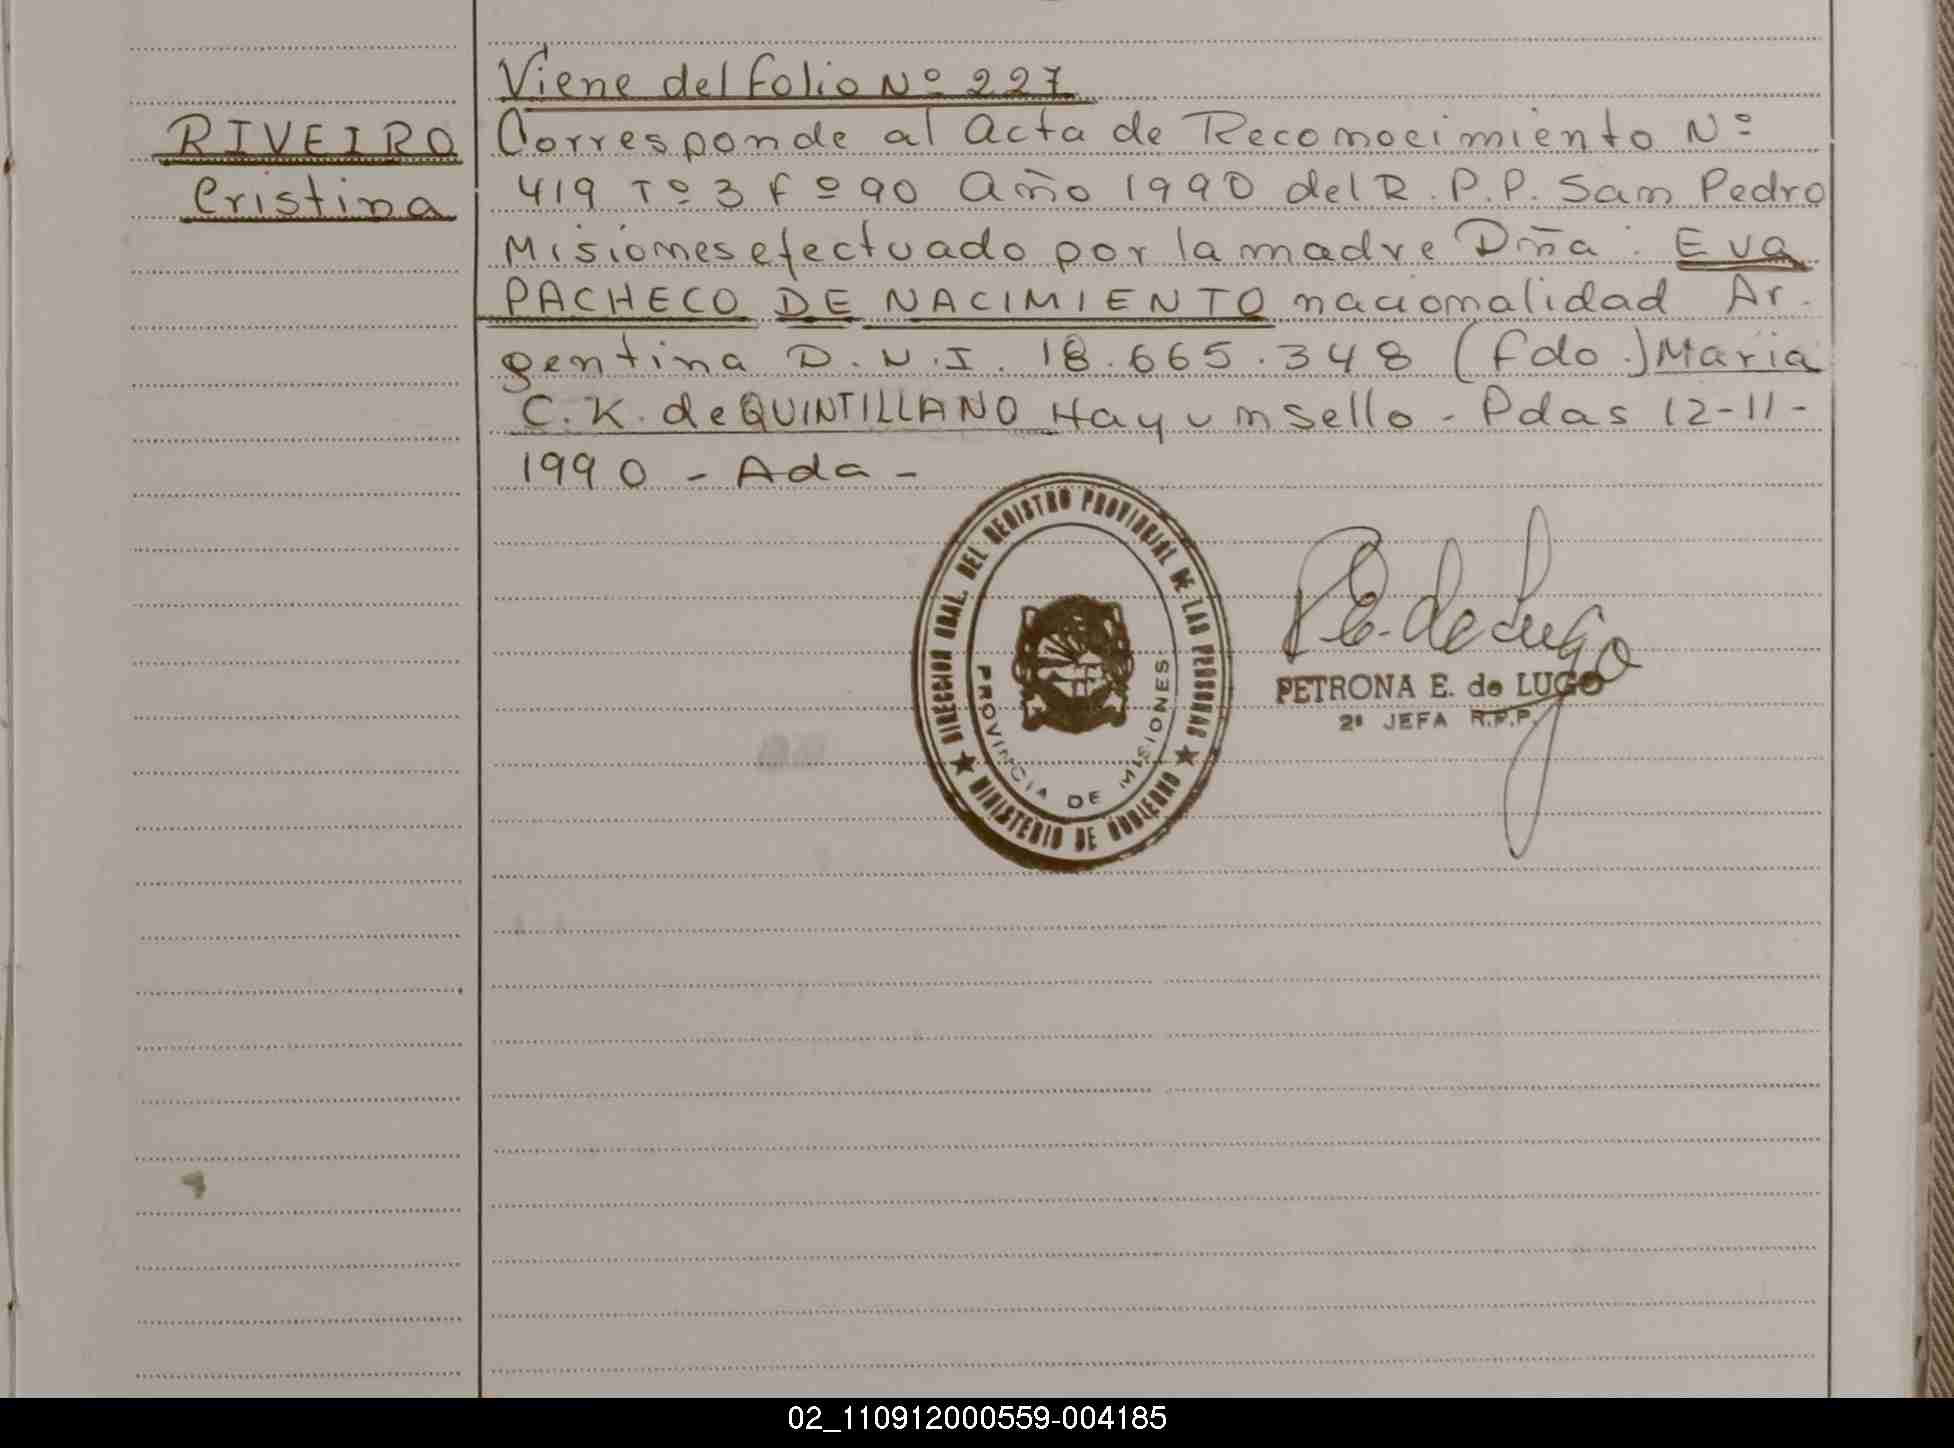 Viene del folio Nº 227
RIVEIRO
Cristina
Corresponde al acta de Reconocimiento Nº
419 Tº 3 fº 90 Año 1990 del R.P.P. San Pedro
Misiones efectuado por la madre Dña: Eva
PACHECO DE NACIMIENTO nacionalidad Ar-
gentina D.N.I. 18.665.348 (fdo.) Maria
C.K. de QUINTILLANO Hay un sello - Pdas 12-11-
1990 - Ada -
DIRECCION GRAL. DEL REGISTRO PROVINCIAL DE LAS PERSONAS
★ MINISTERIO DE GOBIERNO ★
PROVINCIA DE MISIONES
P.E. de Lugo
PETRONA E. de LUGO
2ª JEFA R.P.P.
02_110912000559-004185